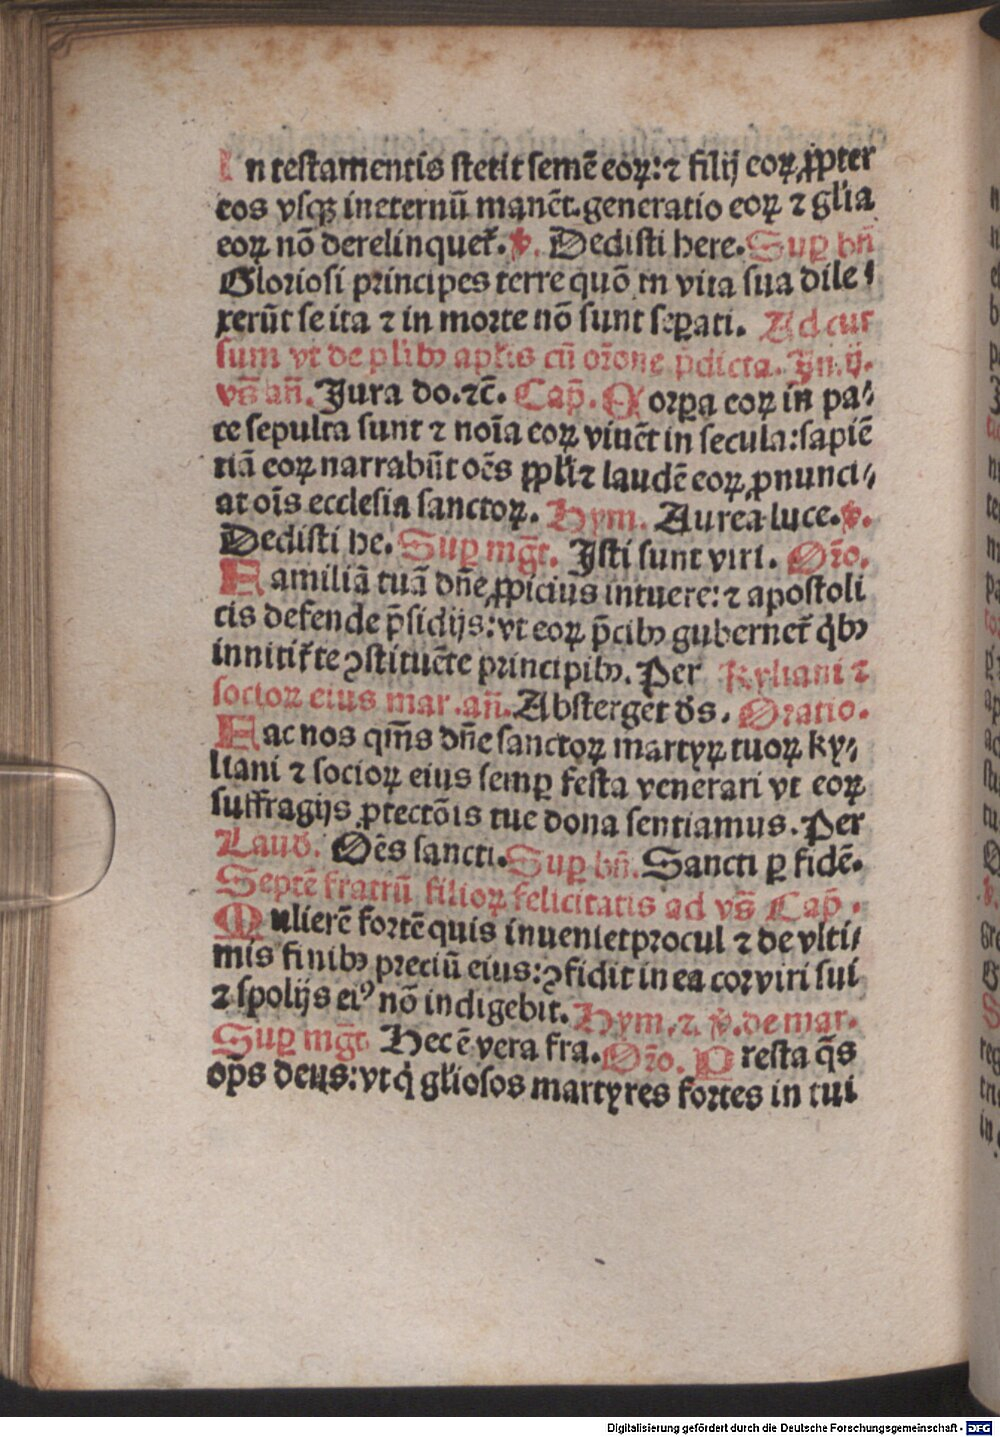 In testamentis stetit semē eoꝝ: ⁊ filij eoꝝ ꝓpter
eos vsqꝫ ineternū manēt. generatio eoꝝ ⁊ gl'ia
eoꝝ nō derelinquet̄. ℣. Dedisti here. Suꝑ bn̄
Gloriosi principes terre quō in vita sua dile⸗
xerūt se ita ⁊ in morte nō sunt seꝑati. Ad cur
sum vt de plib⁹ apl'is cū or̄one p̄dicta. Jn .ij.
vs̄ an̄. Jura do. ⁊c̄. Cap̄. Corꝑa eoꝝ in pa⸗
ce sepulta sunt ⁊ noīa eoꝝ viuēt in secula: sapiē
tiā eoꝝ narrabūt oēs ppl'i ⁊ laudē eoꝝ ꝓnunci⸗
at oīs ecclesia sanctoꝝ. Hym. Aurea luce. ℣.
Dedisti he. Suꝑ mḡt. Jsti sunt viri. Or̄o.
Familiā tuā dn̄e ꝓpicius intuere: ⁊ apostoli
cis defende p̄sidijs: vt eoꝝ p̄cib⁹ gubernet̄ qͥb⁹
innitit̄ te ꝯstituēte principib⁹. Per Kyliani ⁊
socioꝝ eius mar. an̄. Absterget ds̄. Oratio.
Fac nos qm̄s dn̄e sanctoꝝ martyꝝ tuoꝝ ky⸗
liani ⁊ socioꝝ eius semꝑ festa venerari vt eoꝝ
suffragijs ꝓtectōis tue dona sentiamus. Per
Laud. Oēs sancti. Suꝑ bn̄. Sancti ꝑ fidē.
Septē fratrū filioꝝ felicitatis ad vs̄ Cap̄.
Mulierē fortē quis inueniet procul ⁊ de vlti⸗
mis finib⁹ preciū eius: ꝯfidit in ea cor viri sui
⁊ spolijs ei⁹ nō indigebit. Hym. ⁊ ℣. de mar.
Suꝑ mḡt Hec ē vera fra. Or̄o. Presta qs̄
op̄s deus: vt qͥ gl'iosos martyres fortes in tui
Digitalisierung gefördert durch die Deutsche Forschungsgemeinschaft - DFG